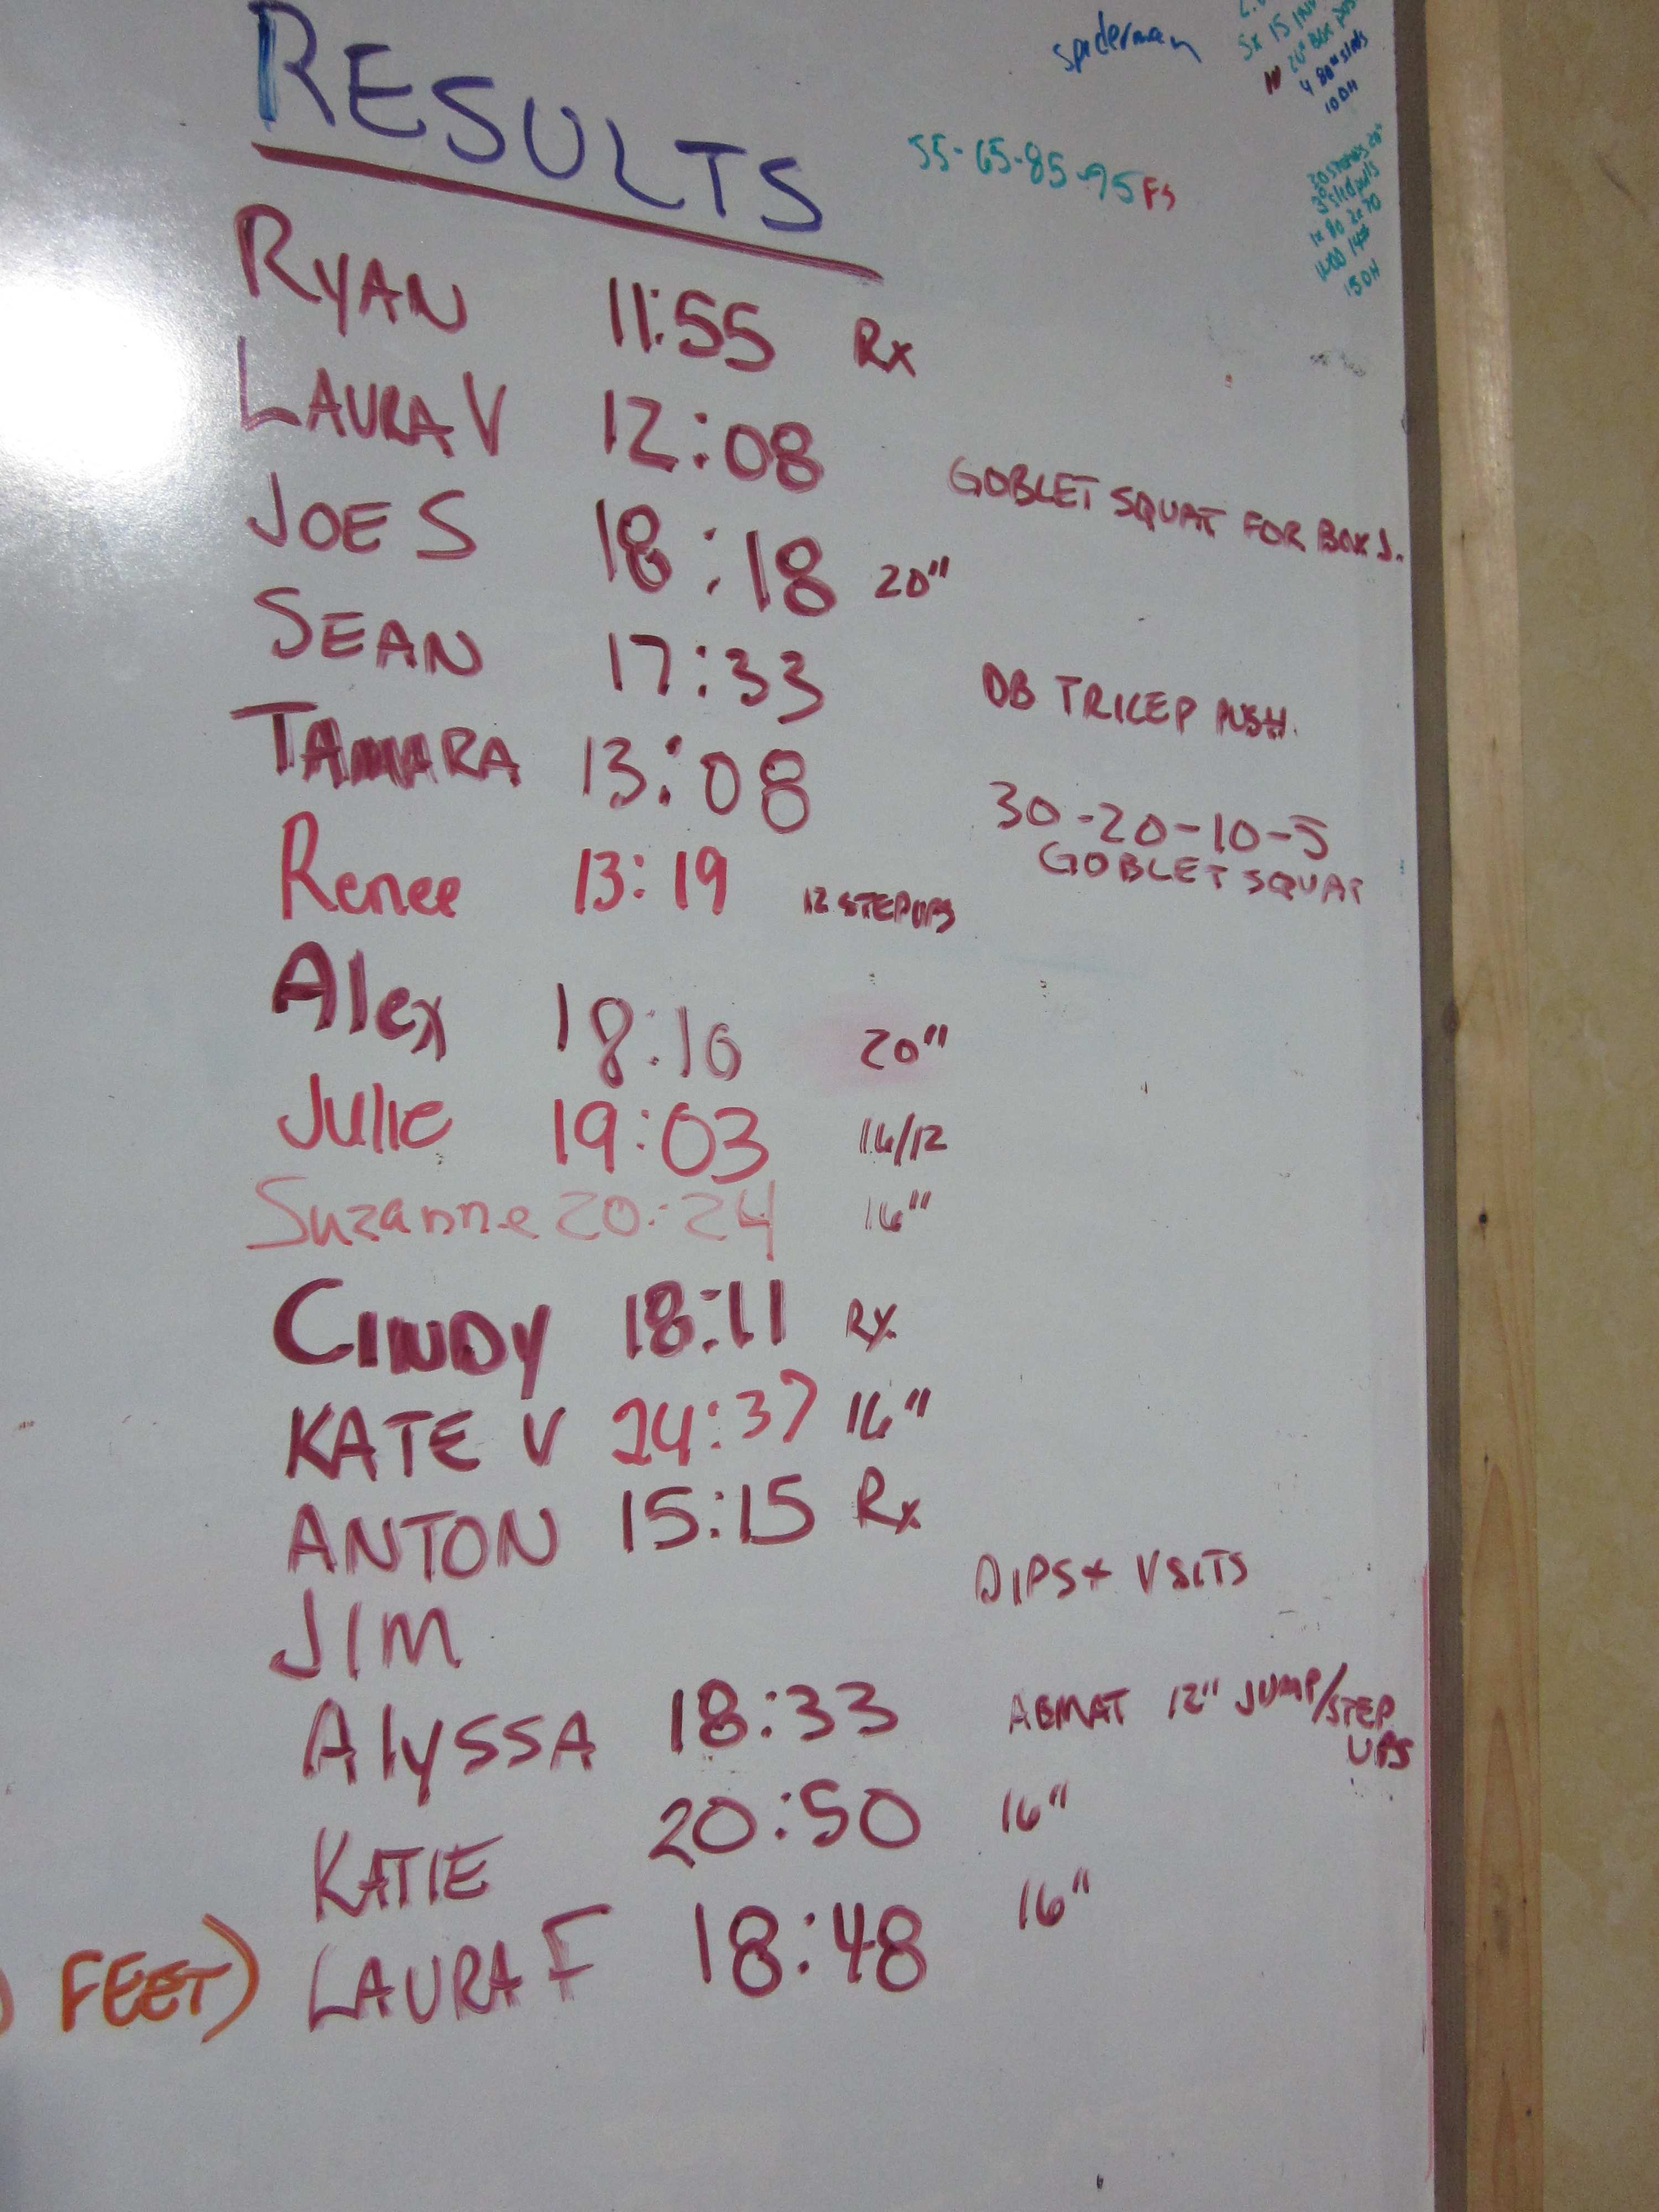 RESULTS
spiderman
55-65-85-95 FS
RYAN 11:55 Rx
LAURA V 12:08 GOBLET SQUAT FOR BOX J.
JOE S 18:18 20"
SEAN 17:33 DB TRICEP PUSH.
TAMARA 13:08 30-20-10-5
GOBLET SQUAT
Renee 13:19 12 STEP UPS
Alex 18:16 20"
Julie 19:03 16/12
Suzanne 20:24 16"
CINDY 18:11 RX
KATE V 24:37 16"
ANTON 15:15 Rx
JIM DIPS + V SITS
Alyssa 18:33 ABMAT 12" JUMP/STEP
UPS
KATIE 20:50 16"
LAURA F 18:48 16"
FEET)